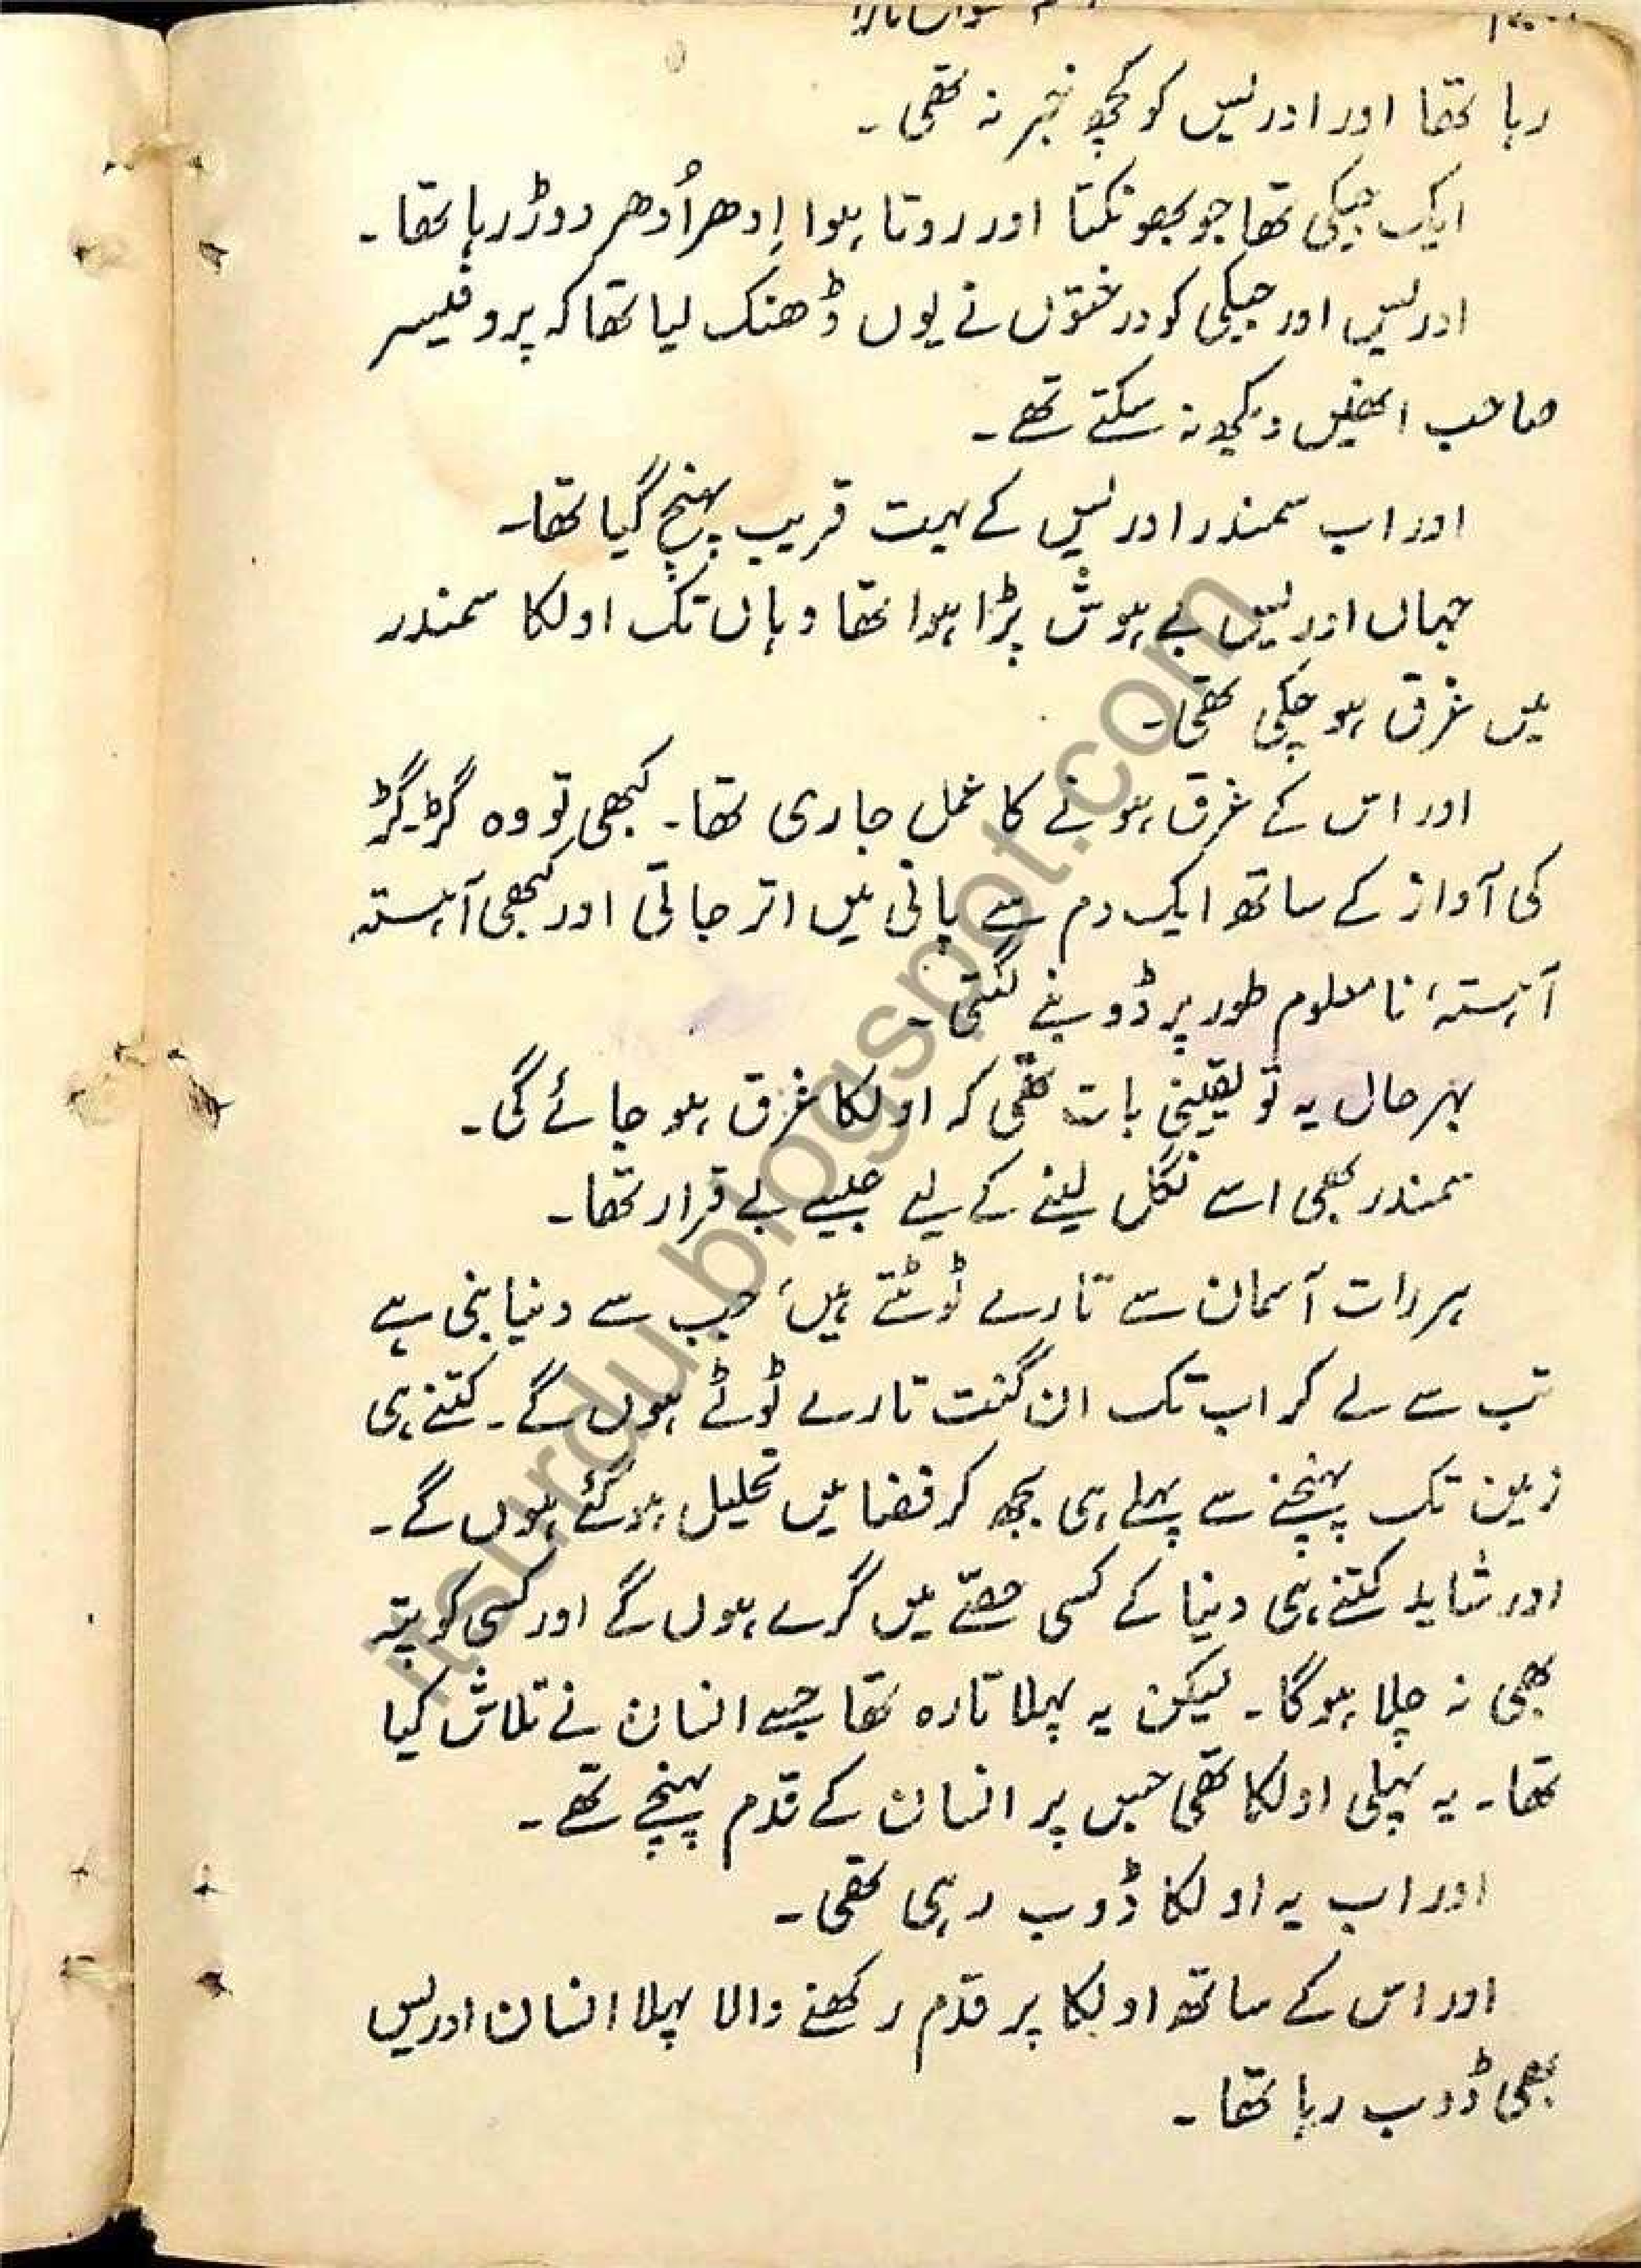 رہا تھا اور ادریس کو کچھ خبر نہ تھی۔
ایک جیکی تھا جو بھونکتا اور روتا ہوا اِدھر اُدھر دوڑ رہا تھا۔
ادریس اور جیکی کو درختوں نے یوں ڈھنک لیا تھا کہ پروفیسر
صاحب انھیں دیکھ نہ سکتے تھے۔
اور اب سمندر ادریس کے بہت قریب پہنچ گیا تھا۔
جہاں ادریس بے ہوش پڑا ہوا تھا وہاں تک اولکا سمندر
میں غرق ہو چکی تھی۔
اور اس کے غرق ہونے کا عمل جاری تھا۔ کبھی تو وہ گڑگڑ
کی آواز کے ساتھ ایک دم سے پانی میں اتر جاتی اور کبھی آہستہ
آہستہ نا معلوم طور پر ڈوبنے لگتی۔
بہر حال یہ تو یقینی بات تھی کہ اولکا غرق ہو جائے گی۔
سمندر بھی اسے نگل لینے کے لیے جیسے بے قرار تھا۔
ہر رات آسمان سے تارے ٹوٹتے ہیں، جب سے دنیا بنی ہے
تب سے لے کر اب تک ان گنت تارے ٹوٹے ہوں گے۔ کتنے ہی
زمین تک پہنچنے سے پہلے ہی بجھ کر فضا میں تحلیل ہو گئے ہوں گے۔
اور شاید کتنے ہی دنیا کے کسی حصّے میں گرے ہوں گے اور کسی کو پتہ
بھی نہ چلا ہوگا۔ لیکن یہ پہلا تارہ تھا جسے انسان نے تلاش کیا
تھا۔ یہ پہلی اولکا تھی جس پر انسان کے قدم پہنچے تھے۔
اور اب یہ اولکا ڈوب رہی تھی۔
اور اس کے ساتھ اولکا پر قدم رکھنے والا پہلا انسان ادریس
بھی ڈوب رہا تھا۔
itsurdu.blogspot.com